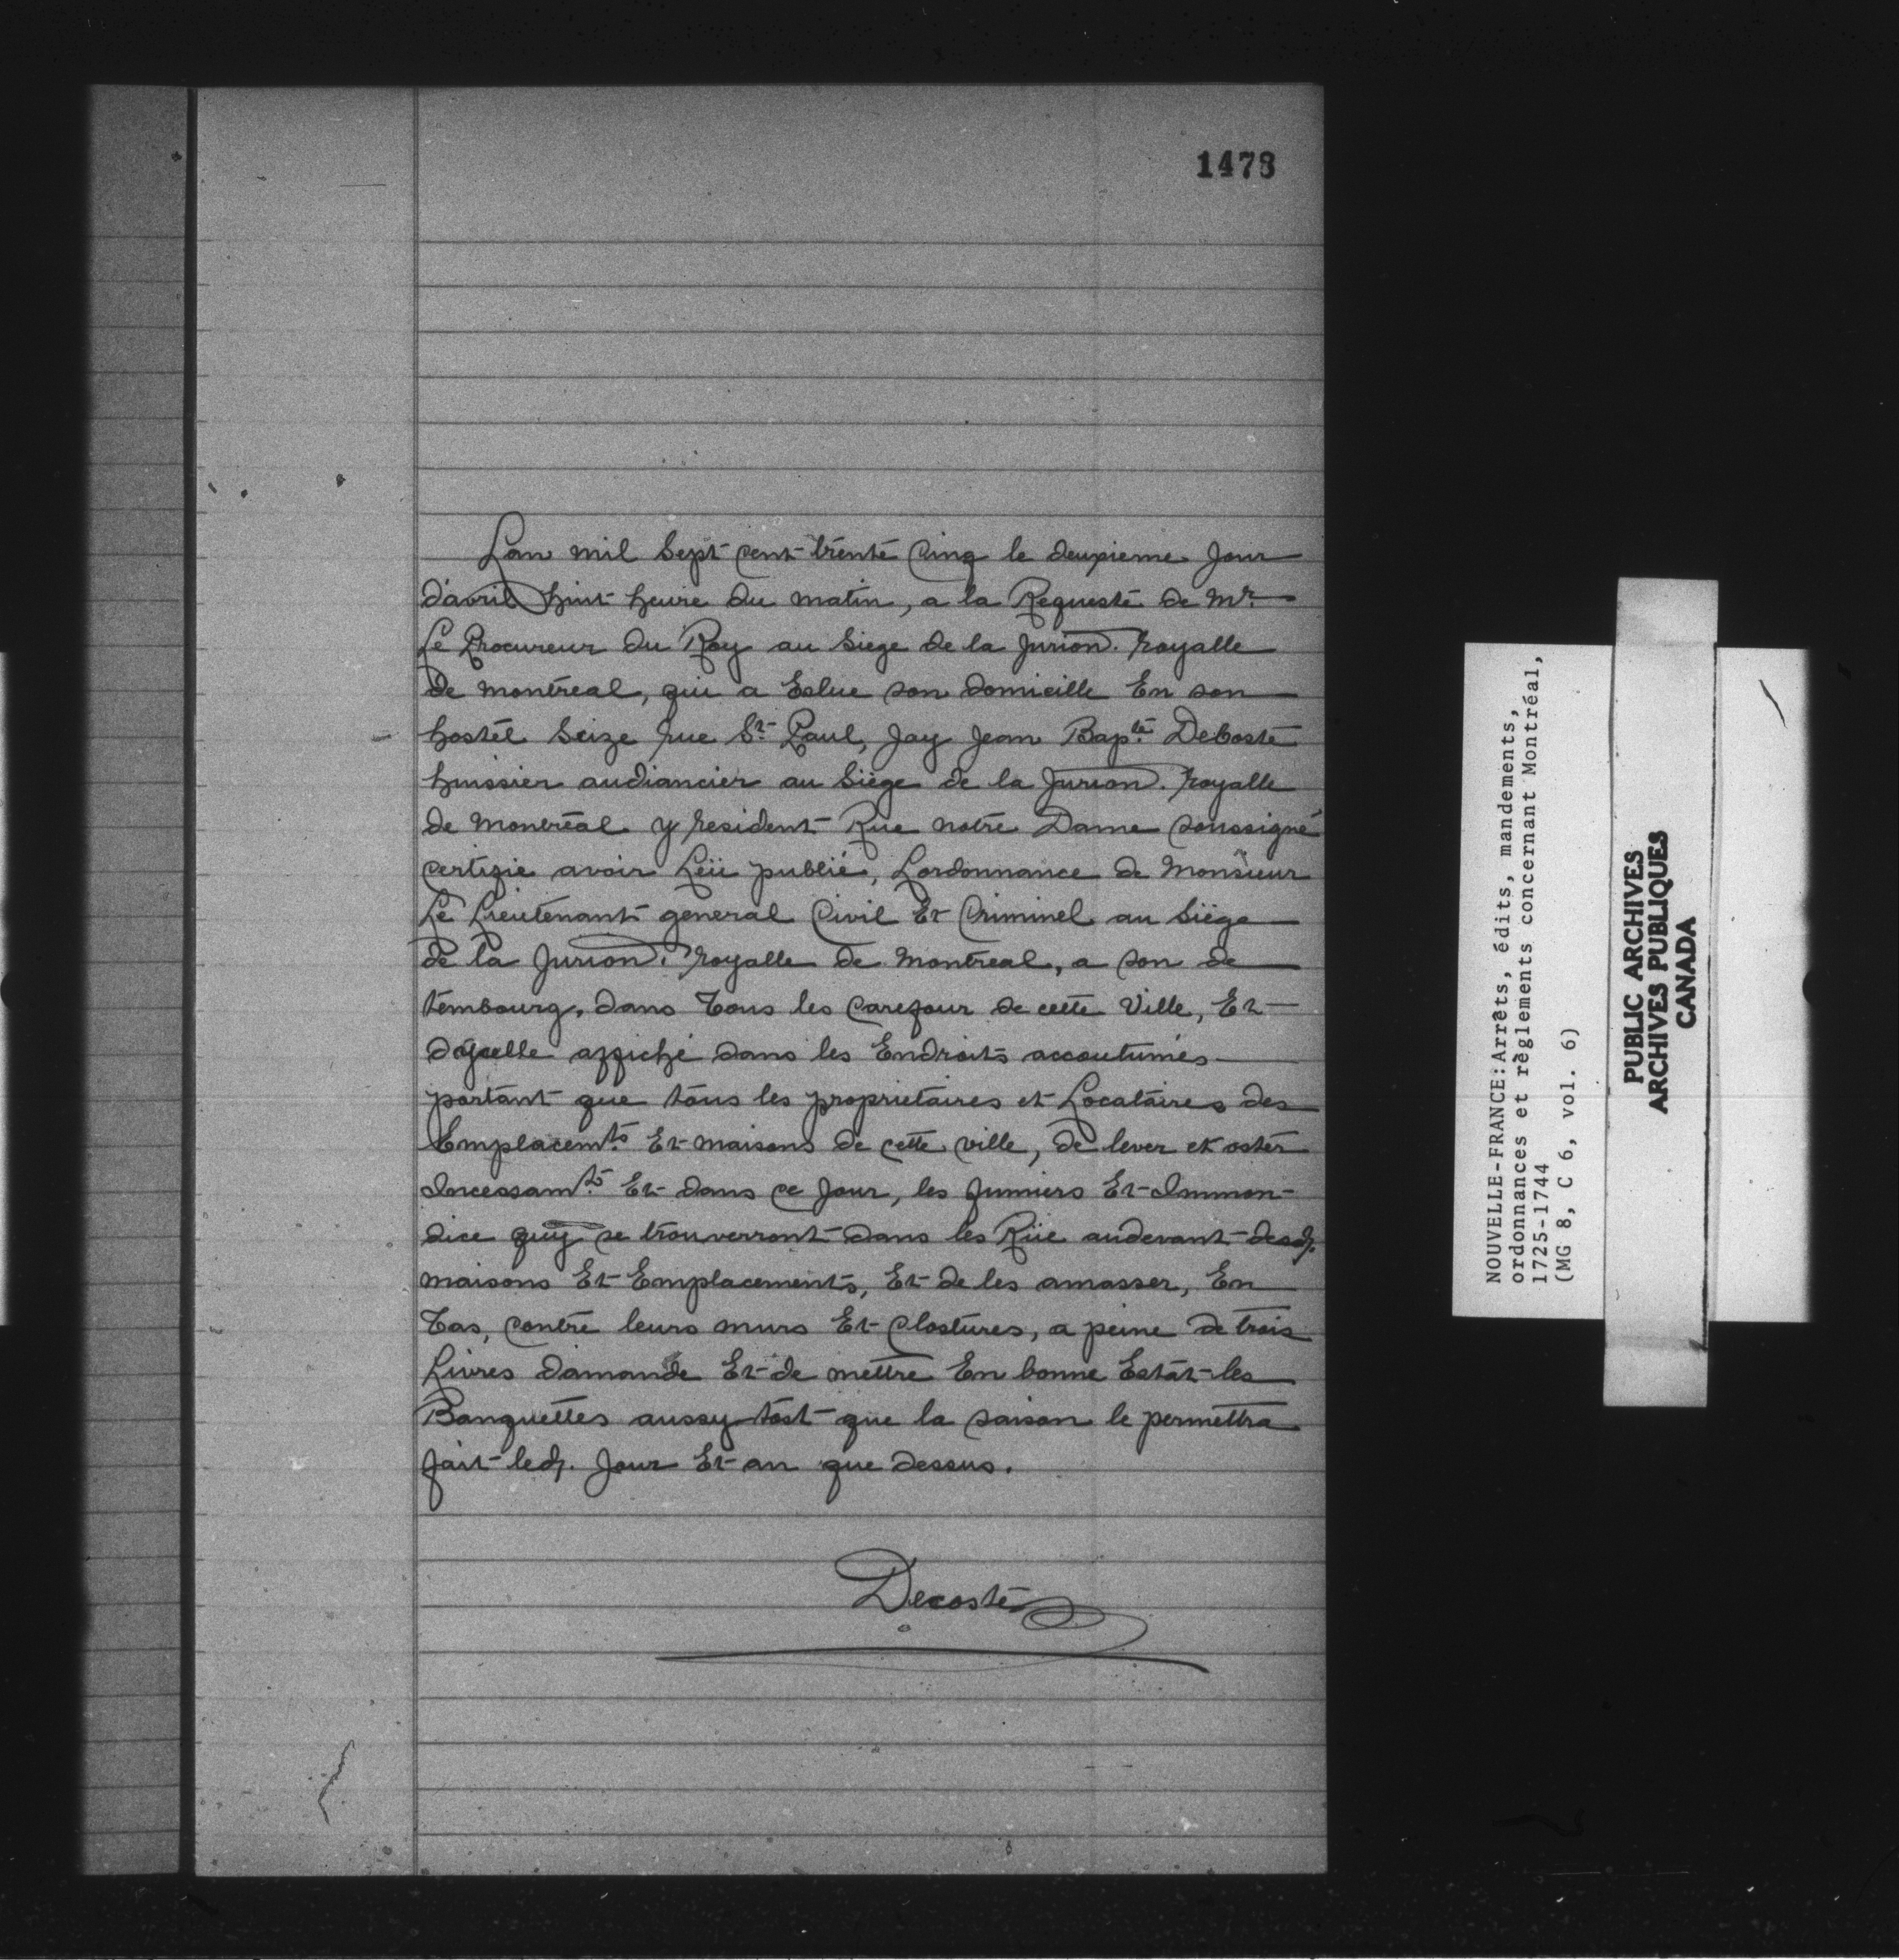 1478
Lan mil Sept cent trente Cinq le deuxieme Jour
d'avril huit heure du matin, a la Requeste de Mr.
Le Procureur du Roy au Siege de la Jurion. royalle
de montreal, qui a Eslue son domicille En son
hostel Seize rue St. Paul, Jay Jean Bapte. Decoste
huissier audiancier au Siège de la Jurion. royalle
de Montréal y resident Rue notre Dame soussigné
certifie avoir Leü publié, Lordonnance de Monsieur
Le Lieutenant general Civil Et Criminel au Siège
de la Jurion. royalle de Montreal, a son de
tembourg, dans Tous les Carefour de cette Ville, Et
dycelle affiché dans les Endroits accoutumés
portant que tous les proprietaires et Locataires des
Emplacemts. Et maisons de cette ville, de lever et oster
Incessamt. Et dans ce Jour, les fumiers Et Immon-
dice quy se trouverront dans les Rüe audevant desd.
maisons Et Emplacements, Et de les amasser, En
Tas, contre leurs murs Et Clostures, a peine de trois
Livres damande Et de mettre En bonne Estat les
Banquettes aussy tost que la saison le permettra
fait led. Jour Et an que dessus.
Decoste
NOUVELLE-FRANCE:Arrêts, édits, mandements,
ordonnances et règlements concernant Montréal,
1725-1744
(MG 8, C 6, vol. 6)
PUBLIC ARCHIVES
ARCHIVES PUBLIQUES
CANADA